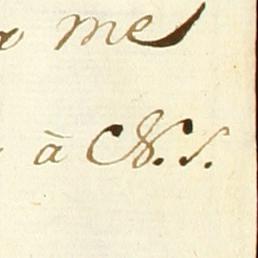 mes
à N. S.